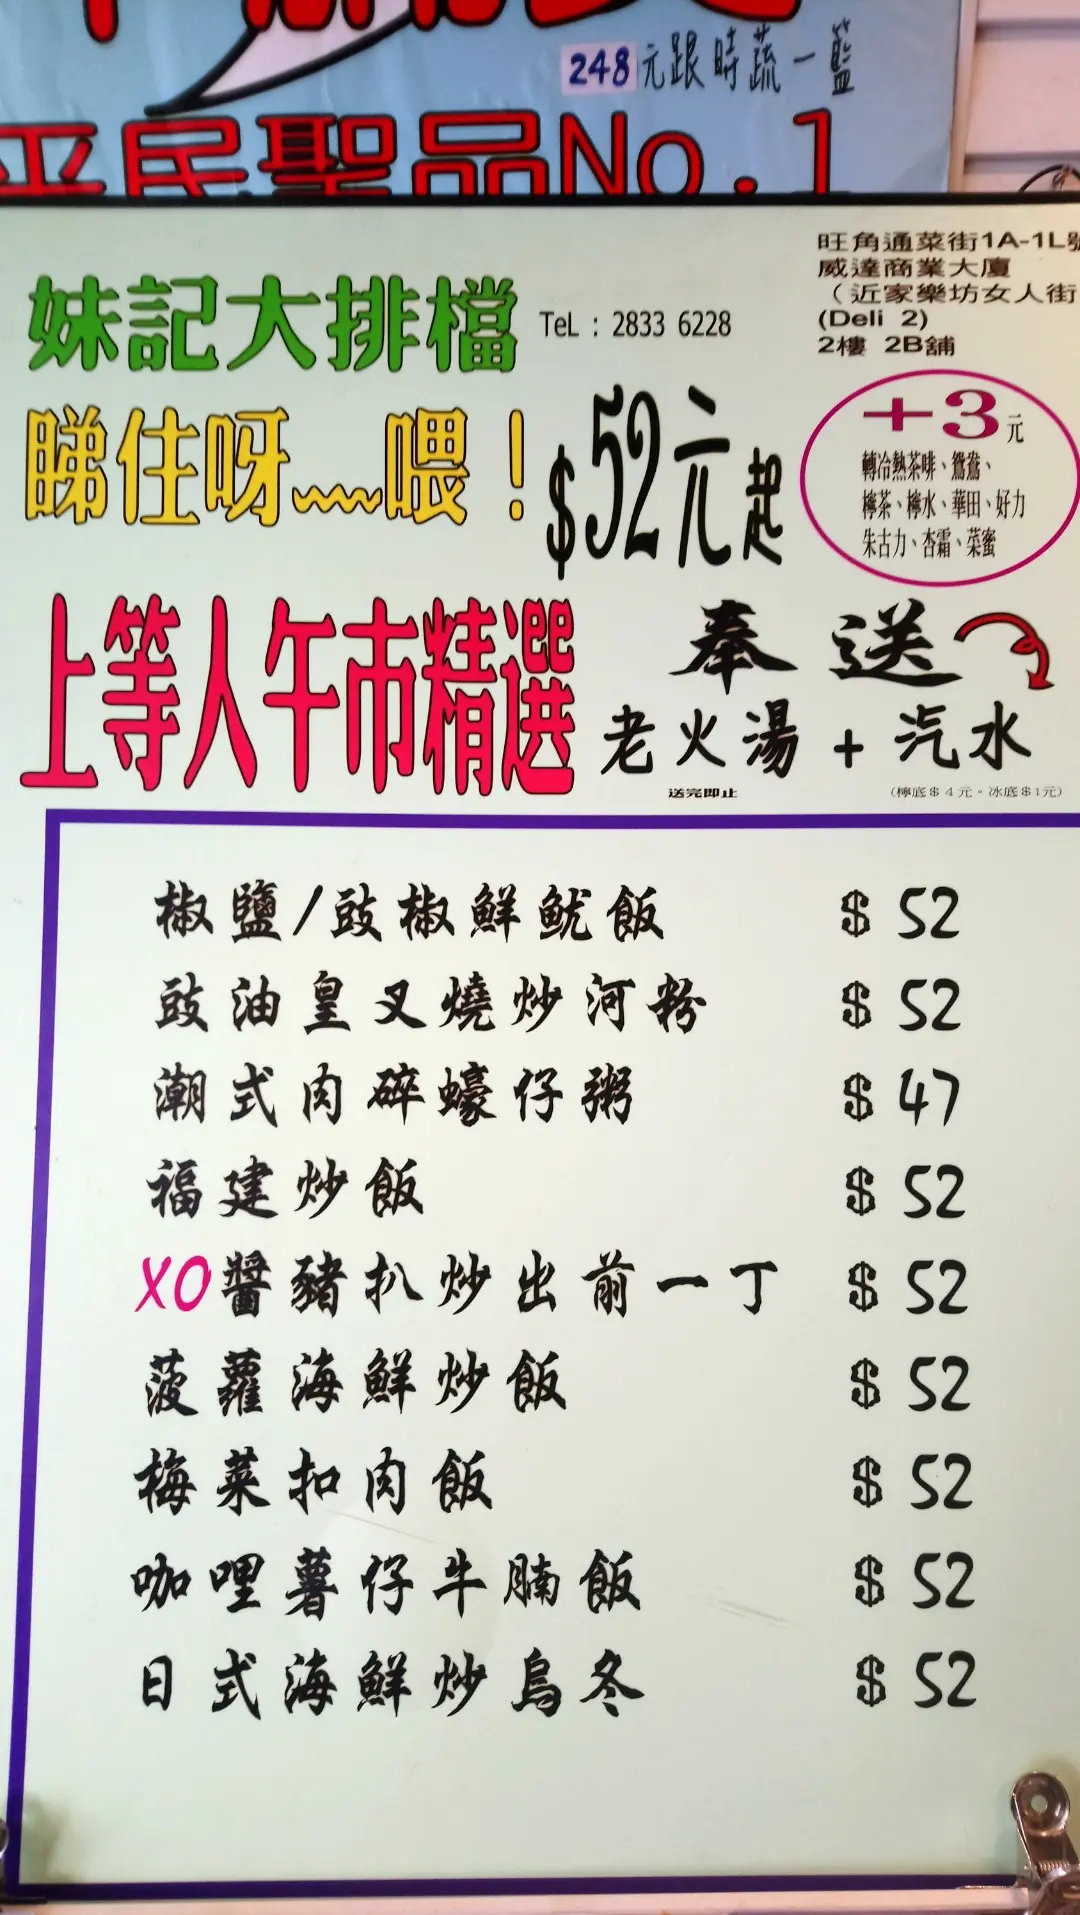 248元跟時蔬一籃
平民聖品No.1
旺角通菜街1A-1L號
威達商業大廈
（近家樂坊女人街
(Deli 2)
2樓 2B舖
妹記大排檔
TeL : 2833 6228
睇住呀﹏喂！
$52元起
+3元
轉冷熱茶啡、鴛鴦、
檸茶、檸水、華田、好力
朱古力、杏霜、菜蜜
上等人午市精選
奉送
老火湯 + 汽水
送完即止
(檸底$4元。冰底$1元)
椒鹽/豉椒鮮魷飯 $52
豉油皇叉燒炒河粉 $52
潮式肉碎蠔仔粥 $47
福建炒飯 $52
XO醬豬扒炒出前一丁 $52
菠蘿海鮮炒飯 $52
梅菜扣肉飯 $52
咖哩薯仔牛腩飯 $52
日式海鮮炒烏冬 $52